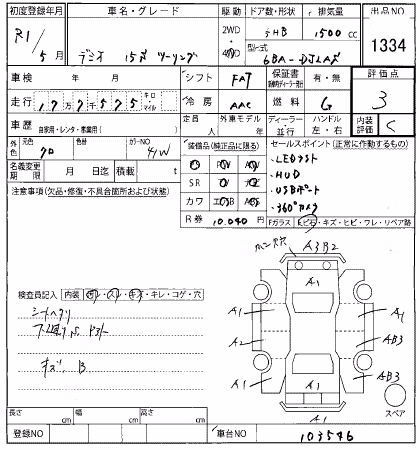 初度登録年月 車名・グレード 駆動 ドア数・形状 排気量 出品NO
R1 5月 デミオ 15S ツーリング 2WD・4WD 5HB 1500 CC 1334
型式 6BA-DJLAS
車検 年 月 シフト FAT 保証書 有・無 評価点 3
走行 キロ・マイル 冷房 AAC 燃料 G 内装評価 C
車歴 自家用・レンタ・事業用( ) 定員 人 外車モデル 年 ディーラー・並行 ハンドル 左・右
元色 クロ 色替 カラーNO 41W
名義変更期限 月 日迄 積載 t
装備品(純正品に限る)
SR
カワ
R券 10,040円
セールスポイント(正常に作動するもの)
・LEDライト
・HUD
・USBポート
・360°カメラ
Fガラス ヒビ石・キズ・ヒビ・ワレ・リペア跡
注意事項(欠品・修復・不具合箇所および状態)
A3B2
A1
検査員記入 内装 ・キズ・キレ・コゲ・穴
シートヘタリ
キズ、B
A1 A1
A2 AB3
A1 A1 AB3
A1
スペア
長さ cm 幅 cm 高さ cm
登録NO 車台NO 103546